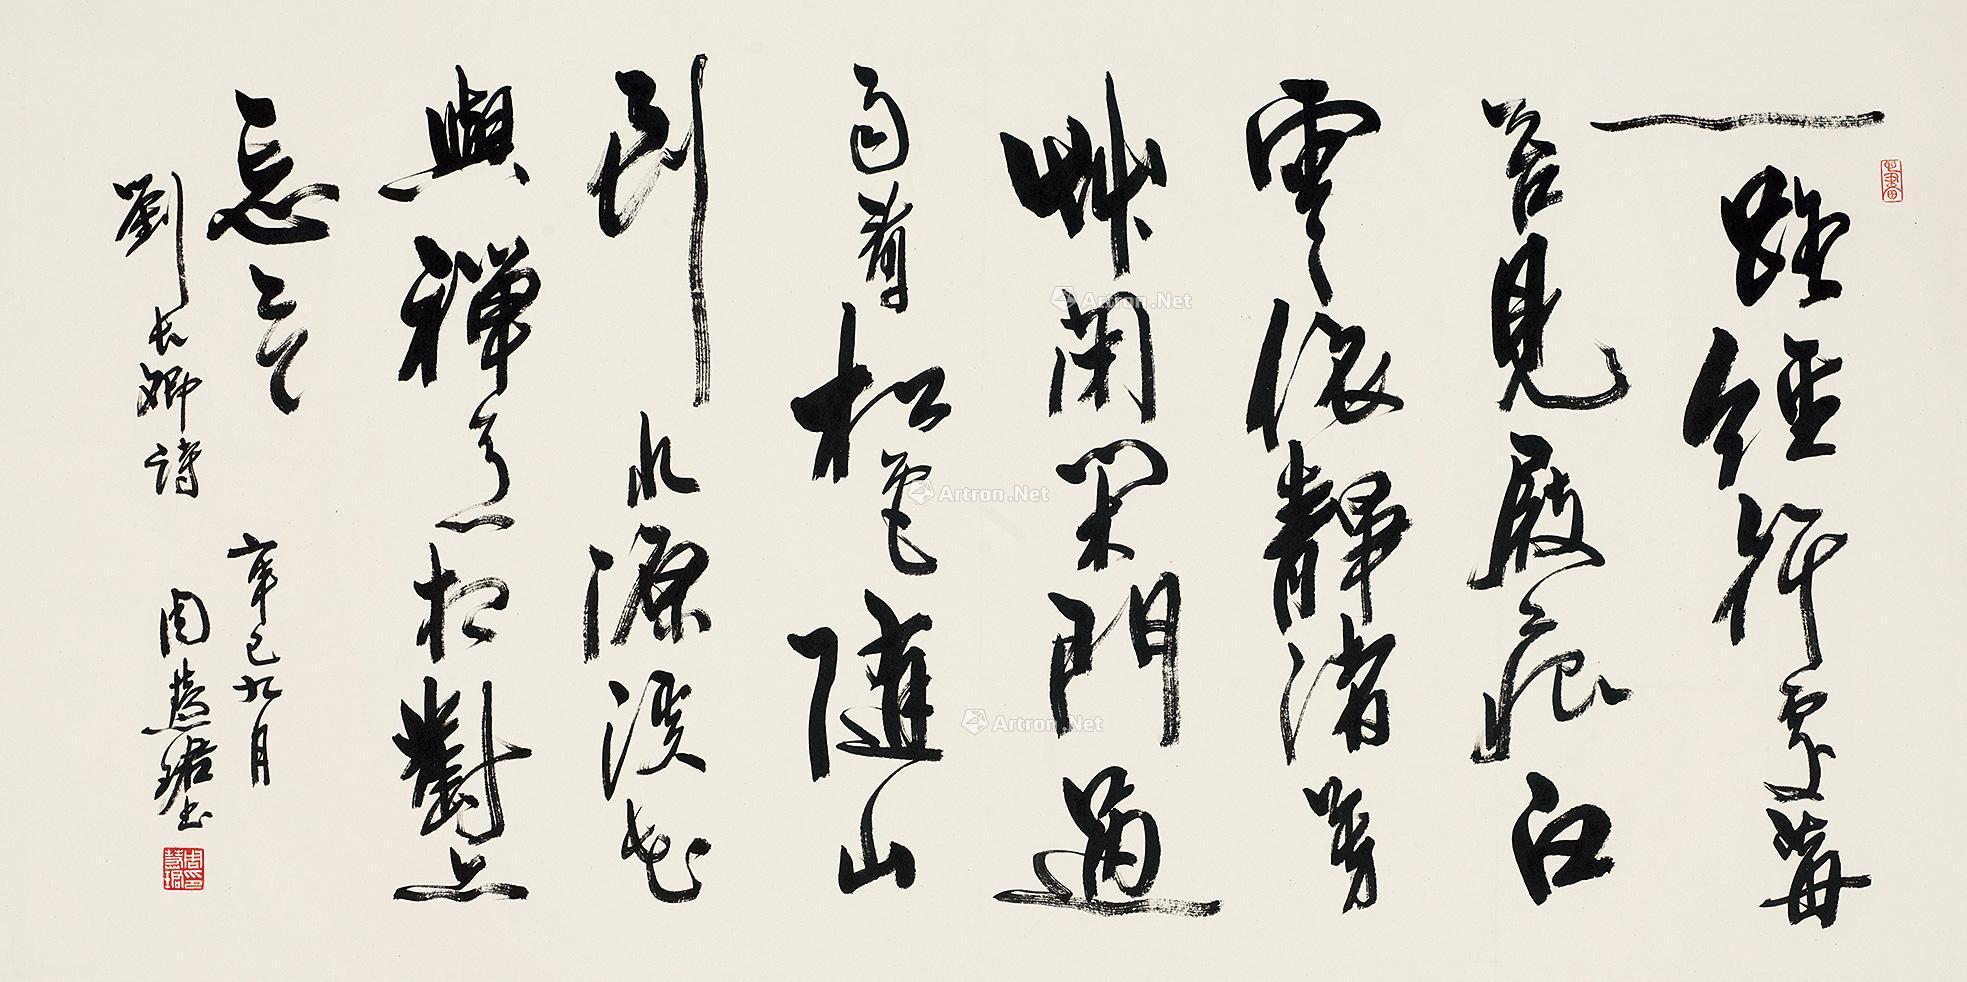 一路經行處莓
苔見屐痕白
雲依靜渚芳
草閉閑門過
雨看松色隨山
到水源溪花
與禪意相對亦
忘言
劉長卿詩
辛巳九月
周慧珺書
周慧珺印
Artron.Net
Artron.Net
Artron.Net